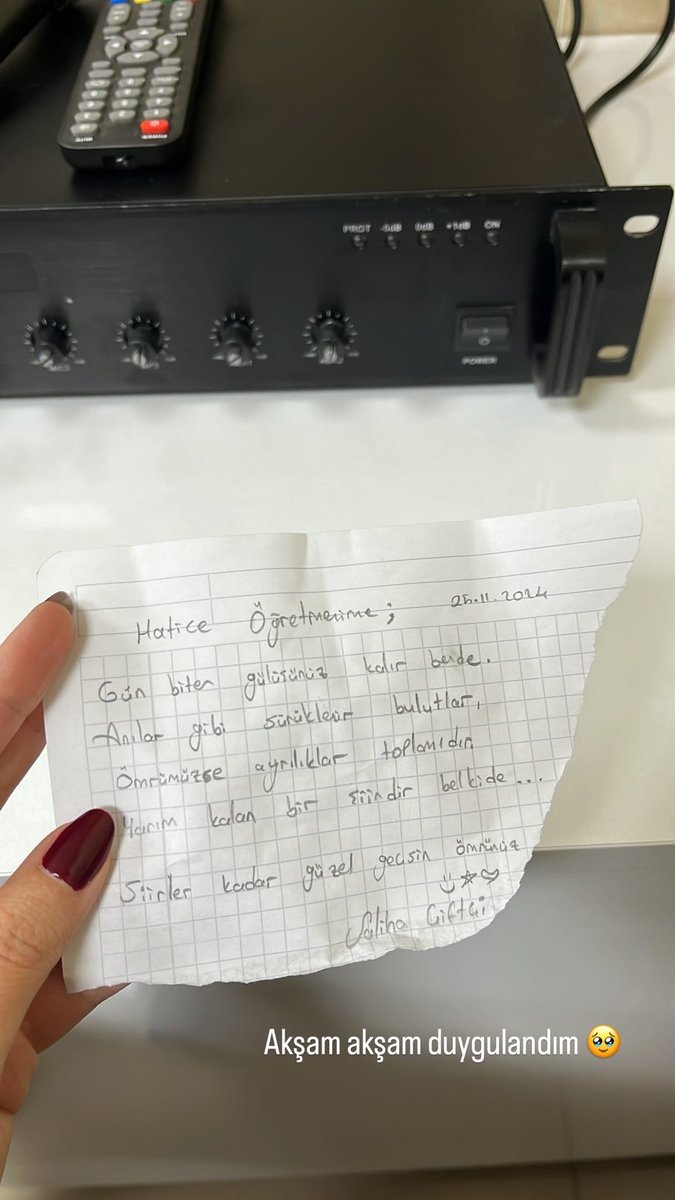 PROT -5dB 0dB +3dB ON
POWER
Hatice Öğretmenime;
25.11.2024
Gün biter gülüşünüz kalır bende.
Anılar gibi sürüklenir bulutlar,
Ömrümüzse ayrılıklar toplamıdır
Yarım kalan bir şiirdir belkide...
Şiirler kadar güzel geçsin ömrünüz
Saliha Çiftçi
Akşam akşam duygulandım 🥹